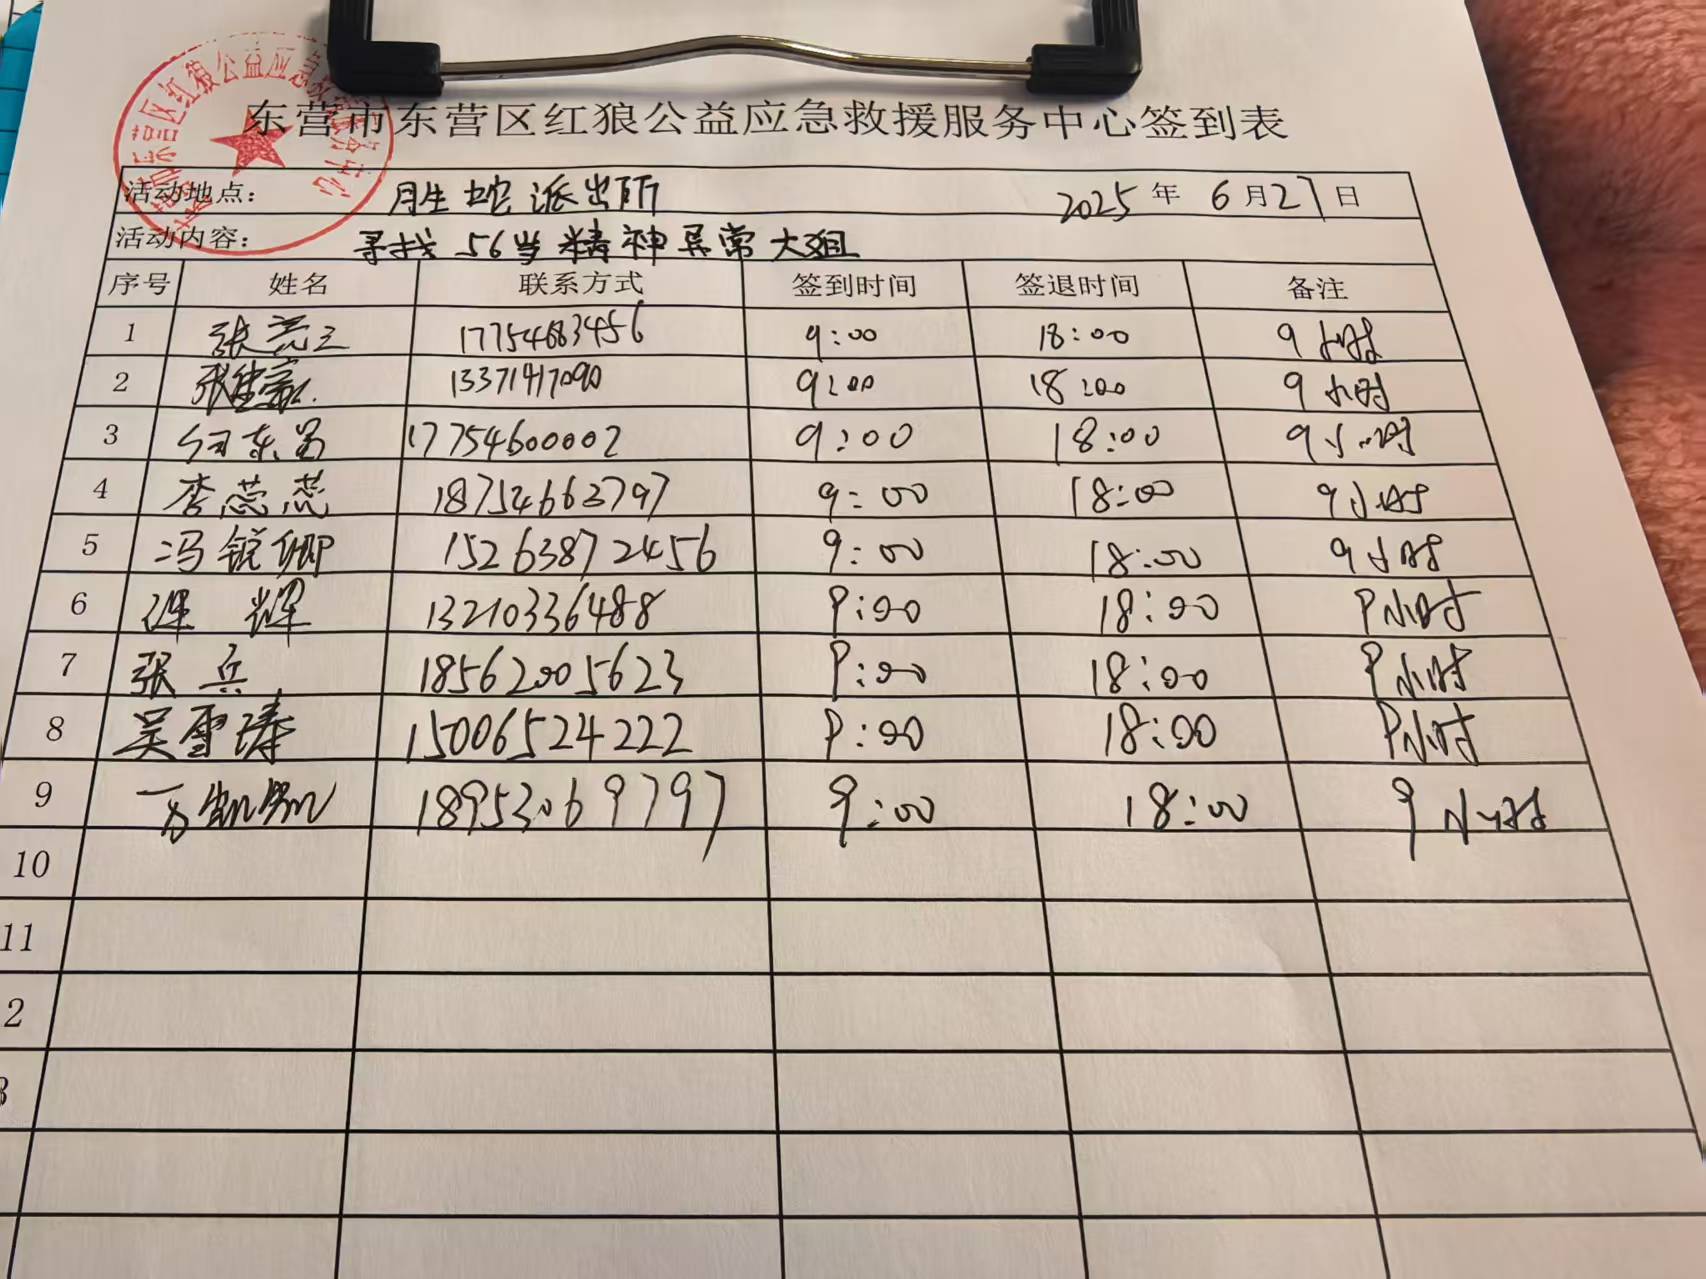 东营市东营区红狼公益应急救援服务中心签到表
活动地点: 胜蛇派出所 2025年 6月27日
活动内容: 寻找56岁精神异常大姐
序号 姓名 联系方式 签到时间 签退时间 备注
1 张亮三 17754683456 9:00 18:00 9小时
2 13371417090 9:00 18:00 9小时
3 何东昌 17754600002 9:00 18:00 9小时
4 李蕊蕊 18754663797 9:00 18:00 9小时
5 冯锐卿 15263872456 9:00 18:00 9小时
6 辉 13210336488 9:00 18:00 9小时
7 张兵 18562005623 9:00 18:00 9小时
8 吴雪涛 15006524222 9:00 18:00 9小时
9 18953069797 9:00 18:00 9小时
10
11
2
3